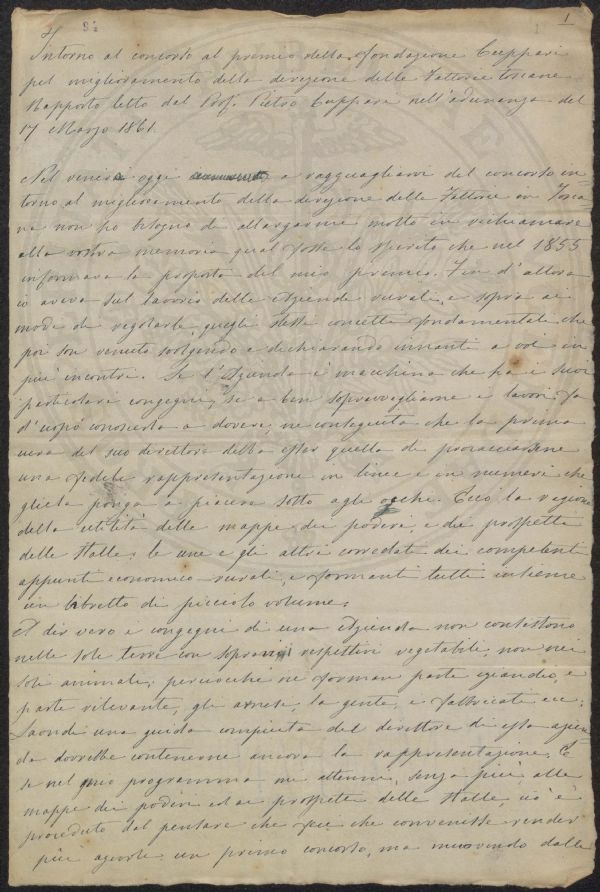 1
Intorno al concorso al premio della fondazione Cuppari
pel miglioramento della direzione delle Fattorie toscane
Rapporto letto dal Prof. Pietro Cuppari nell'adunanza del
17 Marzo 1861.
Nel venire oggi a ragguagliarvi del concorso in=
torno al miglioramento della direzione delle Fattorie in Tosca=
na non ho bisogno di allargarmi molto in richiamare
alla vostra memoria qual fosse lo spirito che nel 1855
informava la proposta del mio premio. Fin d'allora
io aveva sul lavorio delle Aziende rurali, e sopra ai
modi di regolarle, quegli stessi concetti fondamentali che
poi son venuto svolgendo e dichiarando innanti a voi in
più incontri. Se l'Azienda è macchina che ha i suoi
particolari congegni, se a ben sopravvegliarne i lavori fa
d'uopo conoscerla a dovere, ne conseguita che la prima
cura del suo direttore debba esser quella di procacciarsene
una fedele rappresentazione in linee e in numeri che
gliela ponga a piacere sotto agli occhi. Ecco la ragione
della utilità delle mappe dei poderi, e dei prospetti
delle stalle; le une e gli altri corredati dei competenti
appunti economico-rurali, e formanti tutti insieme
un libretto di piccolo volume.
A dir vero i congegni di una Azienda non consistono
nelle sole terre con sopravi i respettivi vegetabili, non nei
soli animali; perciocchè ne forman parte eziandio, e
parte rilevante, gli arnesi, la gente, i fabbricati ecc:
Laonde una guida compiuta del direttore di essa azien
da dovrebbe contenerne ancora la rappresentazione. E
se nel mio programma mi attenni, senza più, alle
mappe dei poderi ed ai prospetti delle stalle, ciò è
proceduto dal pensare che sui che convenisse render
più agevole un primo concorso, ma muovendo dalle